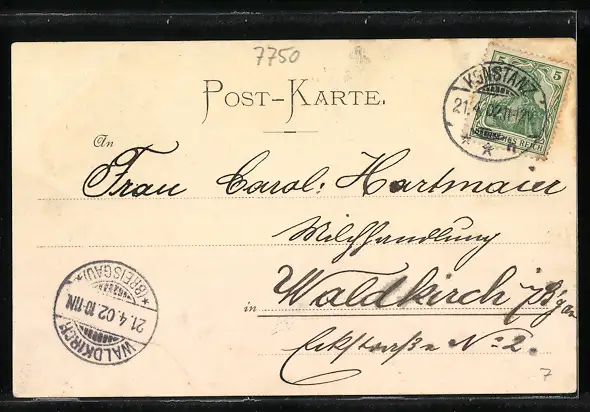 7750
POST-KARTE.
KONSTANZ
21.4.02.11-12V.
5 5
REICH
An
Frau Carol: Hartmaier
Milchhandlung
in Waldkirch i/Bgau
Eckstraße No: 2.
(BREISGAU)
21.4.02.10-11N.
WALDKIRCH
7